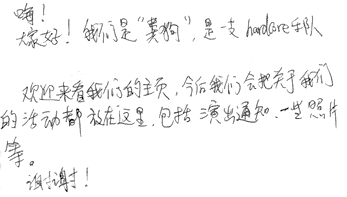 嗨!
大家好! 我们是"粪狗",是一支 hardcore 乐队
欢迎来看我们的主页,今后我们会把关于我们
的活动都放在这里,包括演出通知、一些照片
等。
谢谢!